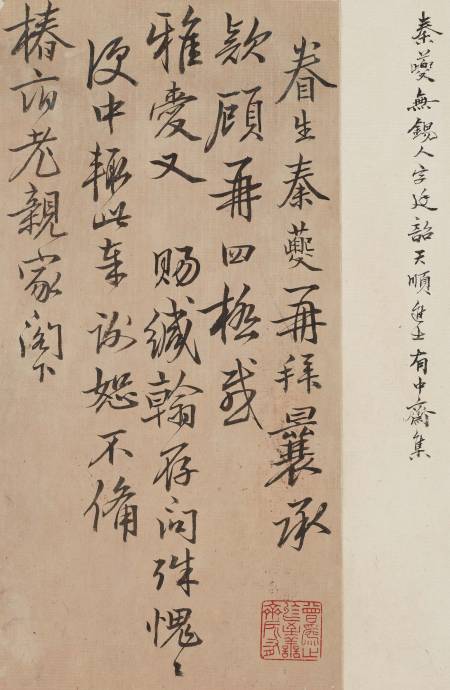 秦夔無錫人字廷韶天順進士有中齋集
眷生秦夔再拜曩承
欵顧再四極感
雅愛又 賜緘翰存问殊愧〻
便中輙此奉謝恕不備
椿老親家阁下